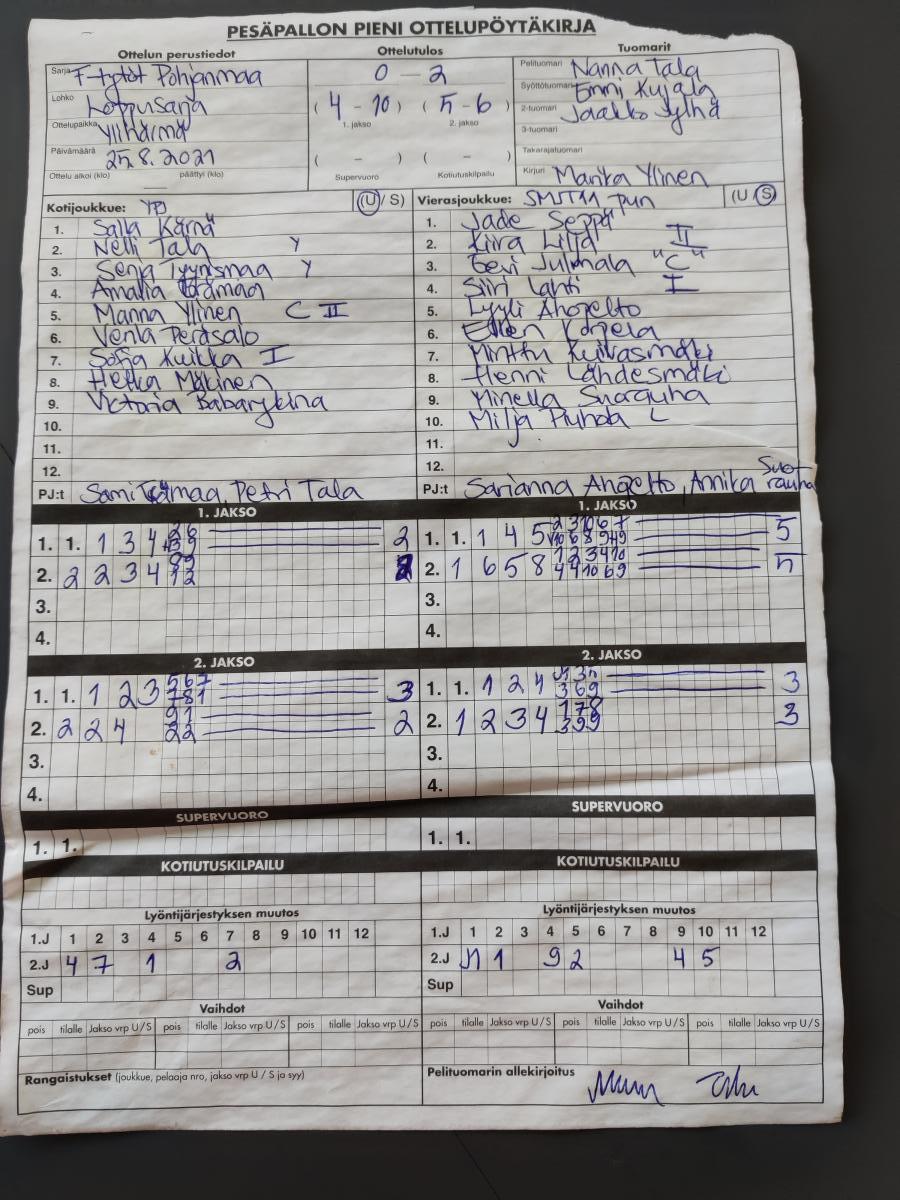 PESÄPALLON PIENI OTTELUPÖYTÄKIRJA
Ottelun perustiedot
Sarja F-tytöt Pohjanmaa
Lohko Loppusarja
Ottelupaikka Ylihärmä
Päivämäärä 25.8.2021
Ottelu alkoi (klo) päättyi (klo)
Ottelutulos
0 - 2
(4 - 10) (5 - 6)
1. jakso 2. jakso
( - ) ( - )
Supervuoro Kotiutuskilpailu
Tuomarit
Pelituomari Nanna Tala
Syöttötuomari Emmi Kujala
2-tuomari Jaakko
3-tuomari
Takarajatuomari
Kirjuri Marika Ylinen
Kotijoukkue: YPJ (U / S)
1. Salla Kärnä
2. Nelli Tala Y
3. Senja Tyynismaa Y
4. Amalia
5. Manna Ylinen C II
6. Venla Peräsalo
7. Sofja Kuikka I
8. Helka Mäkinen
9. Victoria Babarykina
10.
11.
12.
PJ:t Sami Petri Tala
Vierasjoukkue: SMJT11 pun (U / S)
1. Jade Seppä
2. Kiira Lilja II
3. Eevi "C"
4. Siiri Lahti I
5. Lyyli Ahopelto
6. Ellen Korpela
7. Minttu Kuivasmäki
8. Henni Lähdesmäki
9. Minella Suorauha
10. Milja L
11.
12.
PJ:t Sarianna Ahopelto, Annika
1. JAKSO
1. 1. 1 3 4 2
2. 2 2 3 4
3.
4.
1. JAKSO
1. 1. 1 4 5 5
2. 1 6 5 8 5
3.
4.
2. JAKSO
1. 1. 1 2 3 567 781 3
2. 2 2 4 91 22 2
3.
4.
2. JAKSO
1. 1. 1 2 4 369 3
2. 1 2 3 4 178 399 3
3.
4.
SUPERVUORO
1. 1.
SUPERVUORO
1. 1.
KOTIUTUSKILPAILU
KOTIUTUSKILPAILU
Lyöntijärjestyksen muutos
1.J 1 2 3 4 5 6 7 8 9 10 11 12
2.J 4 7 1 2
Sup
Lyöntijärjestyksen muutos
1.J 1 2 3 4 5 6 7 8 9 10 11 12
2.J 1 9 2 4 5
Sup
Vaihdot
pois tilalle Jakso vrp U / S pois tilalle Jakso vrp U / S pois tilalle Jakso vrp U / S
Vaihdot
pois tilalle Jakso vrp U / S pois tilalle Jakso vrp U / S pois tilalle Jakso vrp U / S
Rangaistukset (joukkue, pelaaja nro, jakso vrp U / S ja syy)
Pelituomarin allekirjoitus